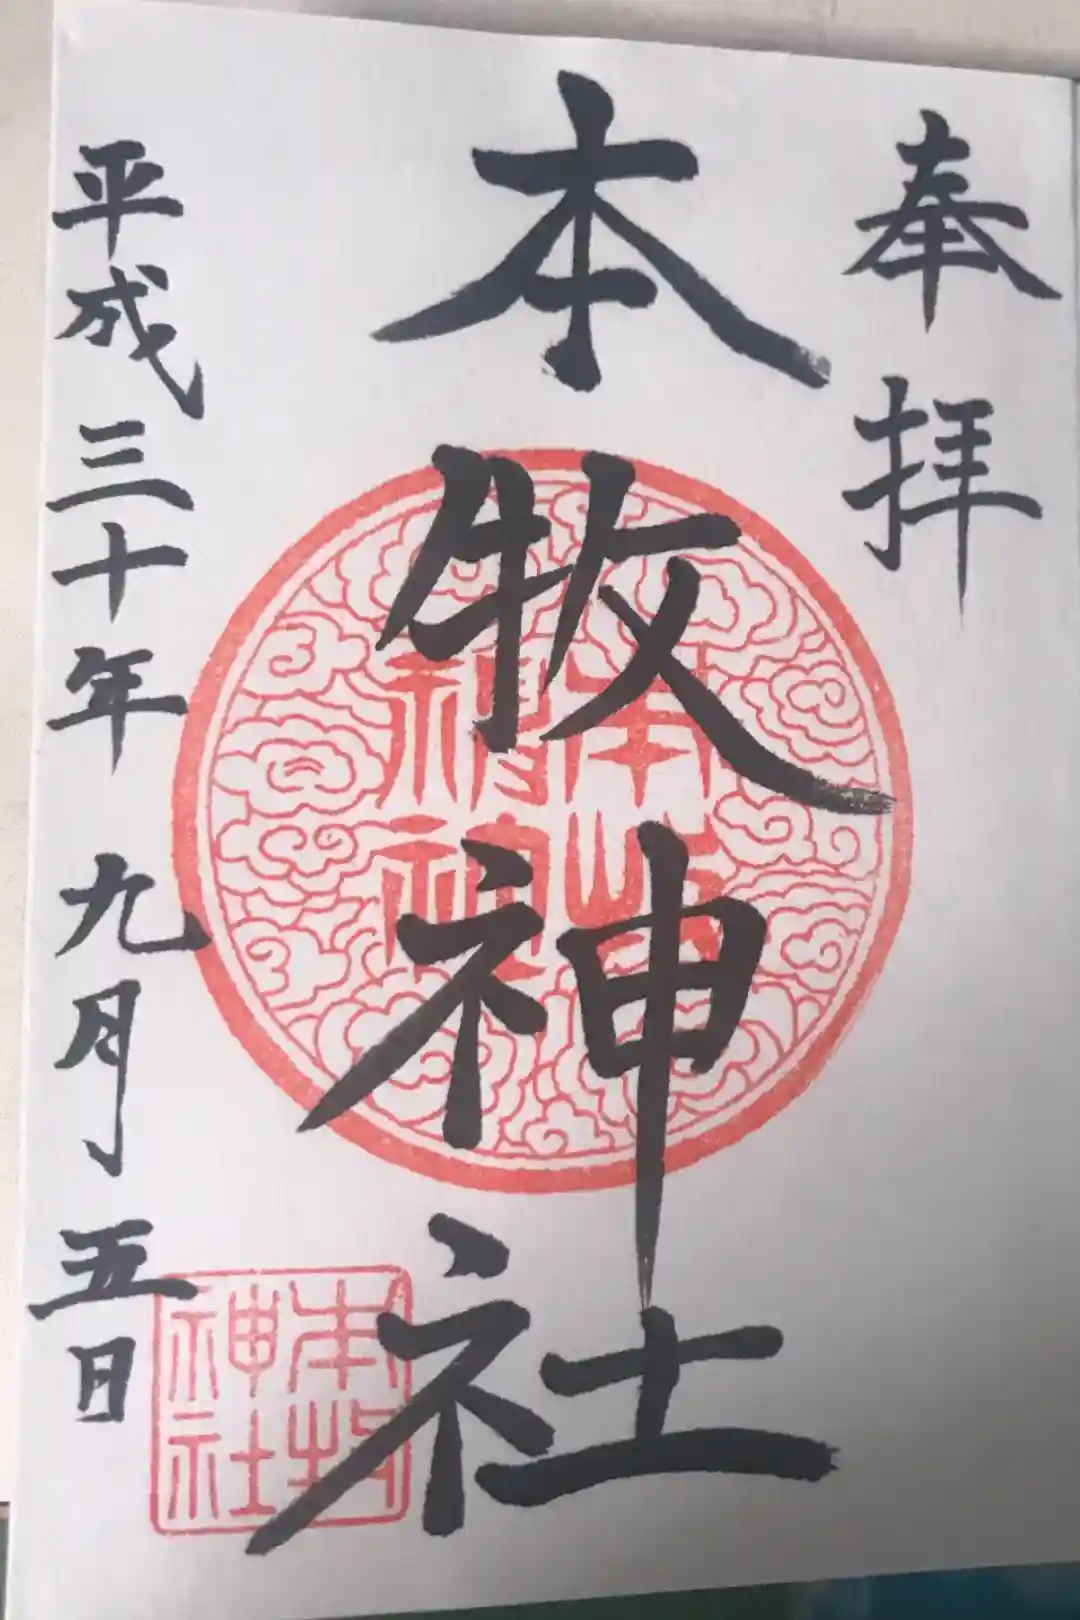 奉拝
本牧神社
平成三十年九月五日
本牧神社